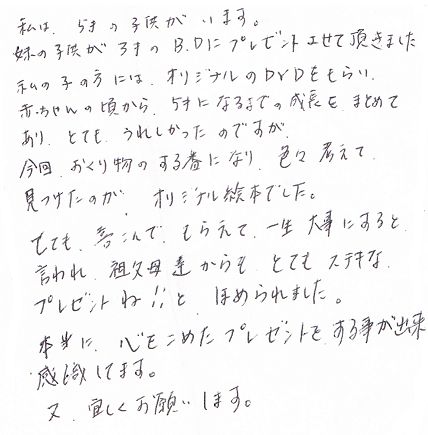 私は、5才の子供がいます。
妹の子供が3才のB.Dにプレゼントさせて頂きました
私の子の方には、オリジナルのDVDをもらい、
赤ちゃんの頃から、5才になるまでの成長を、まとめて
あり、とても、うれしかったのですが、
今回、おくり物のする番になり、色々考えて、
見つけたのが、オリジナル絵本でした。
とても、喜こんで、もらえて、一生大事にすると、
言われ、祖父母達からも、とてもステキな、
プレゼントね!!と、ほめられました。
本当に、心をこめたプレゼントを、する事が出来
感謝してます。
又、宜しくお願いします。